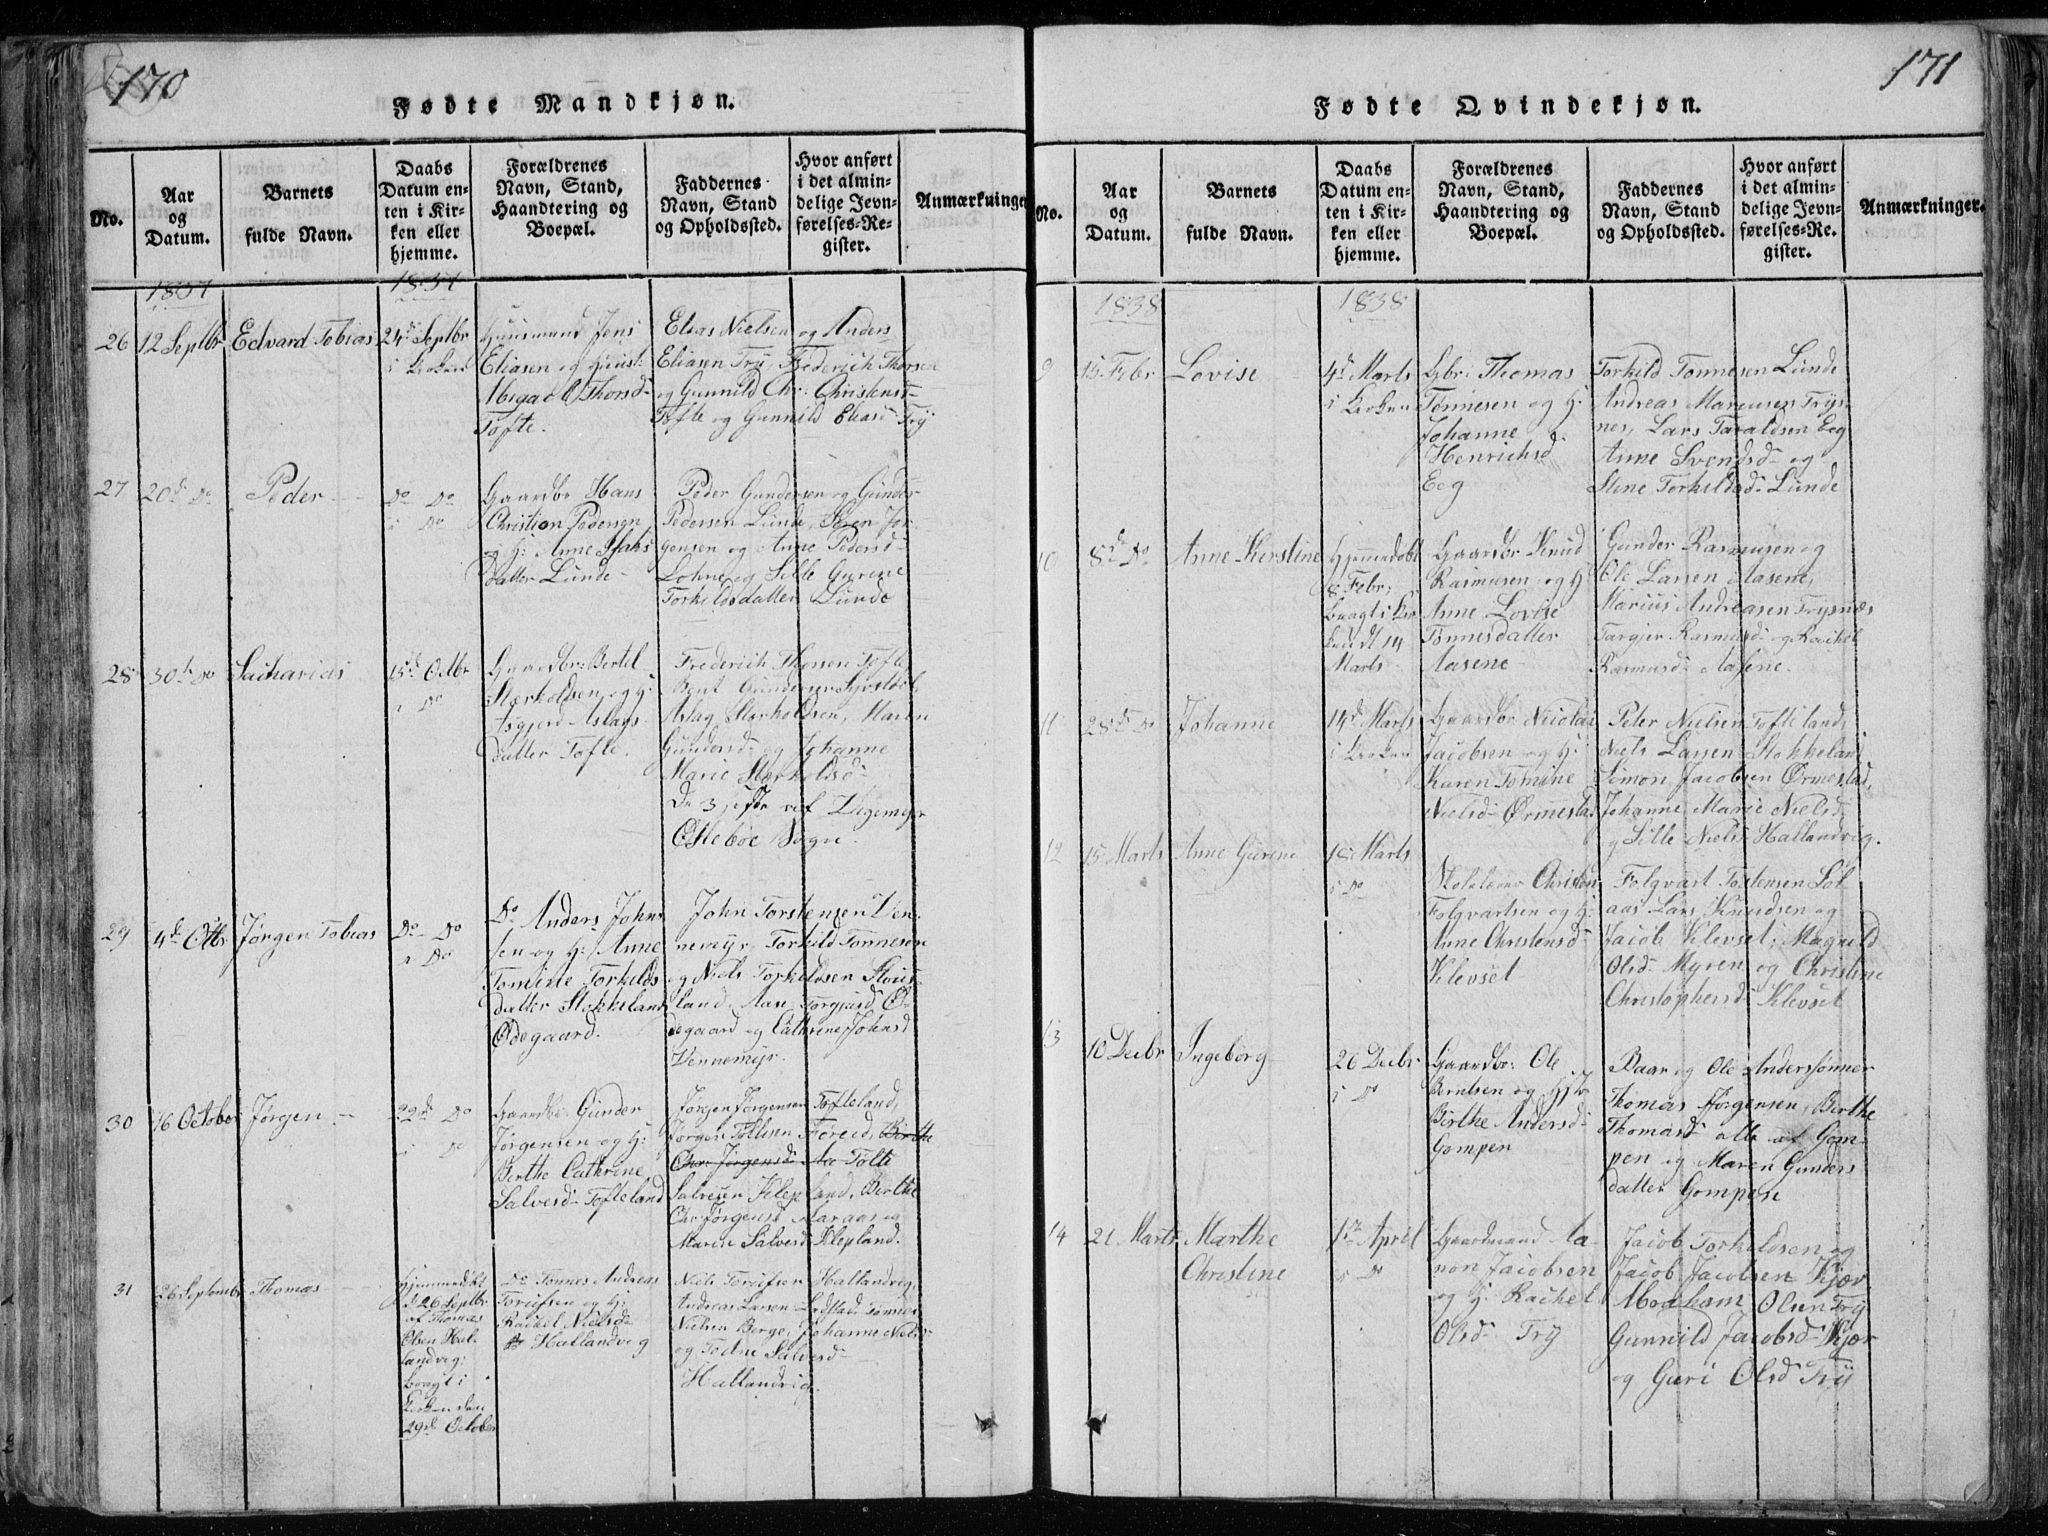 170
Fødte Mandkjøn.
No.
Aar
og
Datum.
Barnets
fulde Navn.
Daabs
Datum en-
ten i Kir-
ken eller
hjemme.
Forældrenes
Navn, Stand,
Haandtering og
Boepæl.
Faddernes
Navn, Stand
og Opholdssted.
Hvor anført
i det almin-
delige Jevn-
førelses-Re-
gister.
Anmærkninger
1837
1837
26
12 Septbr
Edvard Tobias
24de Septbr
i Kirken
Huusmand Jens
Eliasen og Hust:
Abigael Thorsd-
Tofte.
Elias Nielsen og Anders
Eliasen Try, Frederich Thorsen
og Gunnild Chr: Christensd-
Tofte og Gunnild Eliasd- Try
27
20de Do
Peder
Do Do
i Do
Gaardbr Hans
Christian Pedersen
og H: Anne Isaks
datter Lunde-
Peder Gundersen og Gunder
Pedersen Lunde, Søren Jør-
gensen og Anne Pedersd-
Lohne og Sille Gurene
Torkildsdatter Lunde
28
30te Do
Sacharias
15de Octbr
i Do
Gaardbr: Bertel
Størkoldsen og H:
Asgjerd Aslags-
datter Tofte.
Frederich Thorsen Tofte
Bent Gundersen
Aslag Størkoldsen, Maren
Gundersd- og Johanne
Marie Størkoldsd-
De 3 af
Sogn.
29
4de Octbr
Jørgen Tobias
Do- Do
i Do
Do Anders John-
sen og H: Anne
Tomine Torkilds
datter Stokkeland
Ødegaard.
John Torstensen Ven-
nemyr, Torkild Tønnesen
og Niels Torkildsen Stok-
land, Aase Torgiusd Ø-
degaard og Cathrine Johnsd
Vennemyr.
30
16 October
Jørgen
29de Do
i Do
Gaardbr Gunder
Jørgensen og H:
Berthe Cathrine
Salvesd- Tofteland
Jørgen Jørgensen Tofteland,
Jørgen Tollisen Føreid, Birthe
Chr: Jørgensd-
Salvesen Klepland, Birthe
Chr: Jørgensd og
Maren Salvesd- Klepland.
31
26 September
Thomas
Hjemmedøbt
d 26 Septbr
af Thomas
Olsen Hal-
landvig;
bragt i
Kirken den
29de October
Do Tønnes Andreas
Toreifsen og H:
Rachel Nielsd-
Hallandvig
Niels Toreifsen Hallandvig,
Andreas Larsen Tønnes
Nielsen Berge, Johanne Nielsd-
og Todne Salvesd-
Hallandvig.
171
Fødte Qvindekjøn.
No.
Aar
og
Datum.
Barnets
fulde Navn.
Daabs
Datum en-
ten i Kir-
ken eller
hjemme.
Forældrenes
Navn, Stand,
Haandtering og
Boepæl.
Faddernes
Navn, Stand
og Opholdssted.
Hvor anført
i det almin-
delige Jevn-
førelses-Re-
gister.
Anmærkninger.
1838
1838
9
15 Febr
Lovise
4de Marts
i Kirken
Gbr: Thomas
Tønnesen og H:
Johanne
Henrichsd
Eeg
Torkild Tønnesen Lunde
Andreas Mariusen Trys-
nes, Lars Taraldsen Eeg
Anne Svendsd- og
Stene Torkildsd- Lunde
10
8de Do
Anne Kerstine
Hjemmedøbt
8 Febr;
bragt i Kir
14
Marts
Gaardbr Knud
Rasmusen og H
Anne Lovise
Tønnesdatter
Aasene
Gunder Rasmusen og
Ole Larsen Aasene,
Marius Andreasen Trysnæs
Targjer Rasmusd- og Rachel
Rasmusd- Aasene.
11
28de Do
Johanne
14de Marts
i Kirken
Gaardbr Nicolai
Jacobsen og H:
Karen Tomine
Nielsd- Ørmestad
Peter Nielsen Tofteland,
Niels Larsen Stokkeland
Simon Jacobsen Ørmestad,
Johanne Marie Nielsd
og Sille Nielsd Hallandvig.
12
15 Marts
Anne Gurene
18 Marts
i Do
Skolelærer Christen
Folqvartsen og H:
Anne Christensd-
Klevset
Folqvart Tostensen Løl
aas Lars Knudsen og
Jacob Klevset, Magnild
Olsd- Myren og Christine
Christophersd- Klevset
13
10 Decbr
Ingeborg
26 Decbr
i Do
Gaardbr: Ole
Berntsen og Hstr
Birthe Andersd-
Gompen
Baar og Ole Anderssønner
Thomas Jørgensen, Berthe
Thomasd- alle af Gom-
pen og Maren Gunders
datter Gompen
14
21 Marts
Marthe
Christine
1ste April
i Do
Gaardmand Aa-
non Jacobsen
og H: Rachel
Olsd- Try
Jacob Torkildsen og
Jacob Jacobsen Kjær
Abraham Olsen Try
Gunnild Jacobsd- Kjær
og Guri Olsd Try